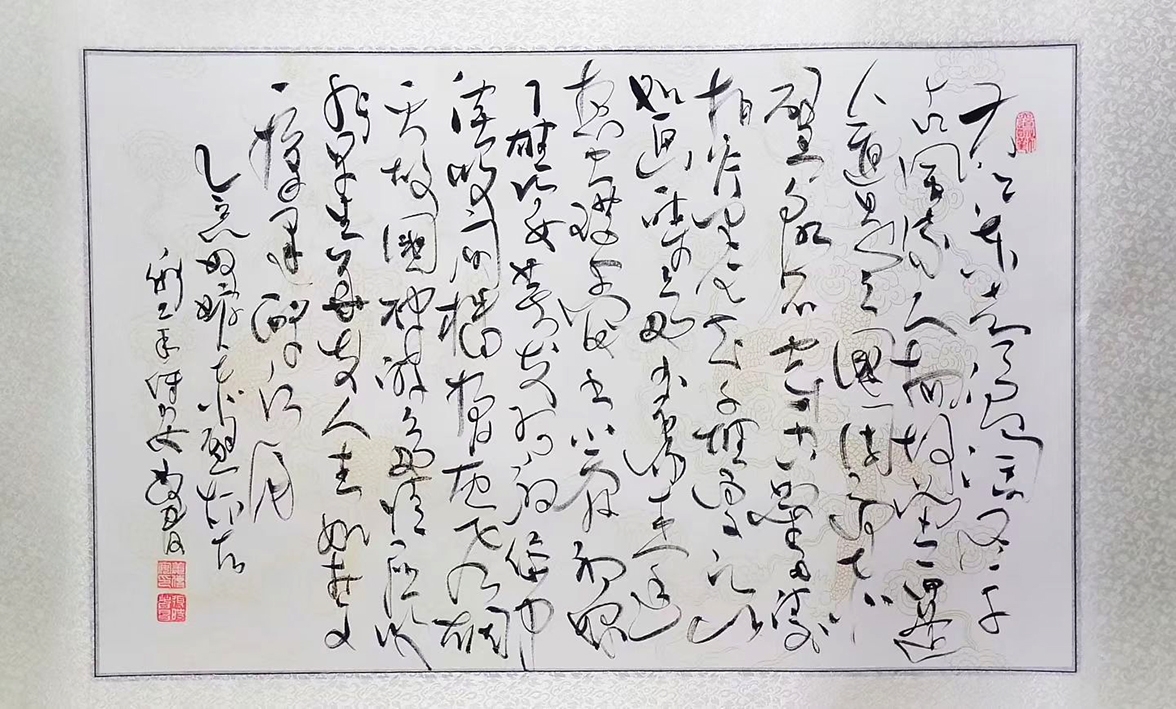 大江东去浪淘尽千
古風流人物故垒西邊
人道是三國周郎赤
壁乱石穿空惊涛
拍岸卷起千堆雪江山
如画一时多少豪杰遥
想公瑾当年小乔初嫁
了雄姿英发羽扇纶巾
谈笑间樯橹灰飞烟
故國神游多情应笑
我早生华发人生如梦
一樽还酹江月
念奴娇赤壁怀古